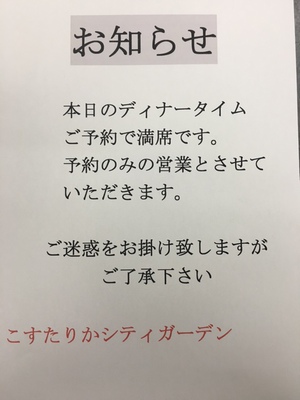 お知らせ
本日のディナータイム
ご予約で満席です。
予約のみの営業とさせて
いただきます。
ご迷惑をお掛け致しますが
ご了承下さい
こすたりかシティガーデン